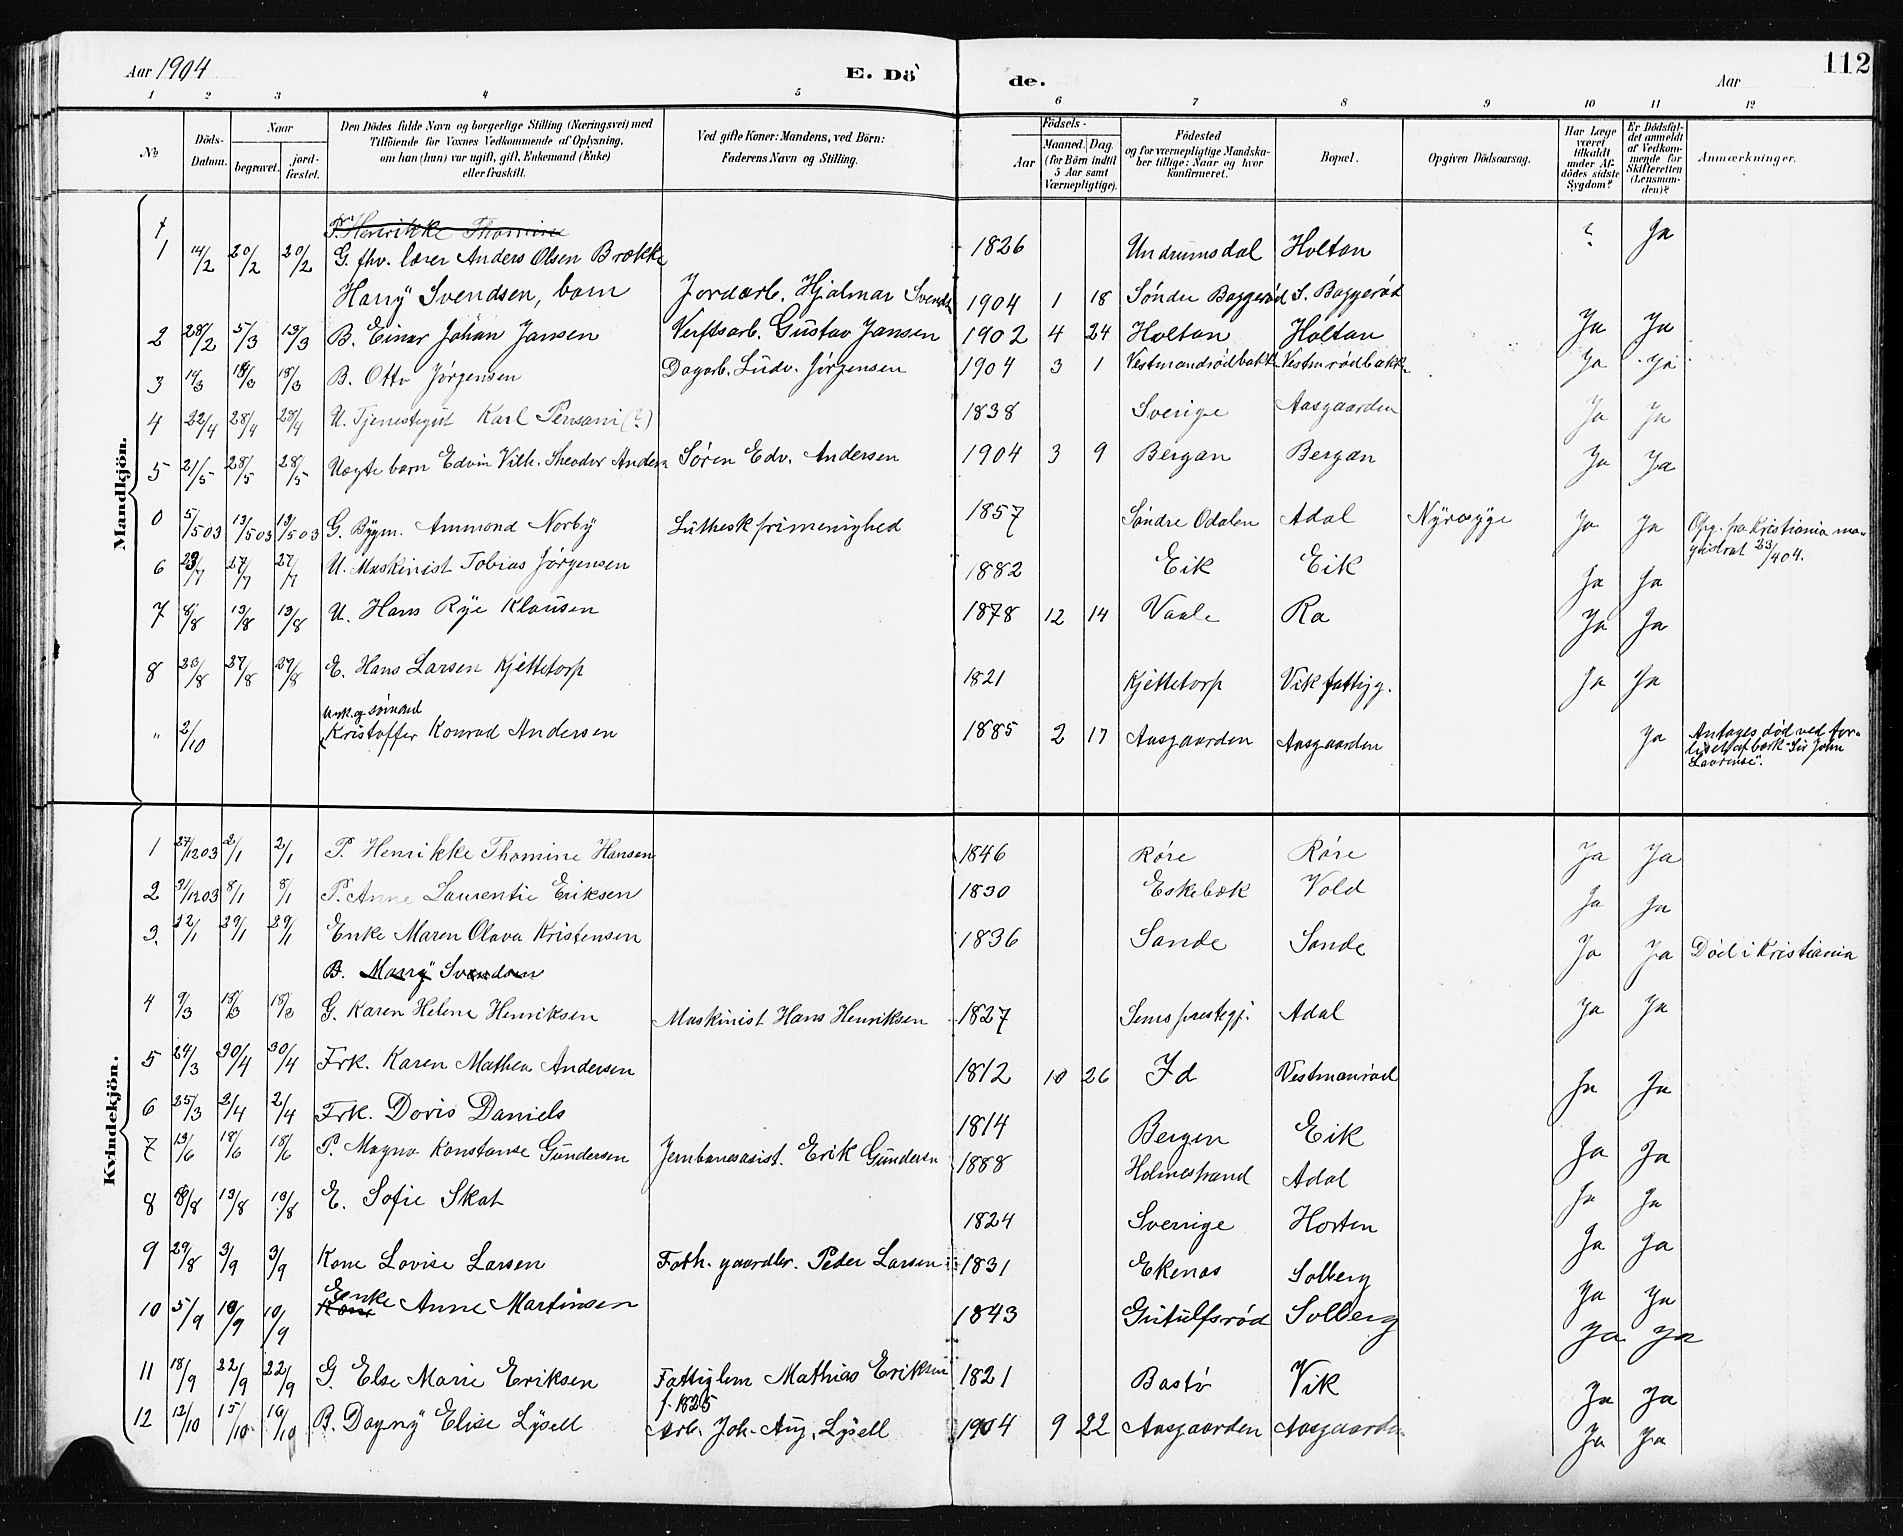 Aar 1904 E. Dö de. Aar 112
1 2 3 4 5 6 7 8 9 10 11 12
№ Döds-Datum. Naar begravet. jord-fæstet. Den Dödes fulde Navn og borgerlige Stilling (Næringsvei) med Tilföiende for Voxnes Vedkommende af Oplysning, om han (hun) var ugift, gift, Enkemand (Enke) eller fraskilt. Ved gifte Koner: Mandens, ved Börn: Faderens Navn og Stilling. Födsels- Aar Maaned. (for Börn indtil 5 Aar samt Værnepligtige). Dag. Födested og for værnepligtige Mandska-ber tillige: Naar og hvor konfirmeret. Bopæl. Opgiven Dödsaarsag. Har Læge været tilkaldt under Af-dödes sidste Sygdom? Er Dödsfal-det anmeldt af Vedkom-mende for Skifteretten (Lensman-den)? Anmærkninger.
Mandkjön.
P. Henrikke Thomine
1 14/2 20/2 20/2 G. fhv. lærer Anders Olsen Brække 1826 Undrumsdal Holtan ? Ja
Harry Svendsen, barn Jordarb. Hjalmar Svends 1904 1 18 Søndre Baggerød S. Baggerød
2 28/2 5/3 13/3 B. Einar Johan Jansen Verftsarb. Gustav Jansen 1902 4 24 Holtan Holtan Ja Ja
3 14/3 18/3 18/3 B. Otto Jørgensen Dagarb. Ludv. Jørgensen 1904 3 1 Vestmandrødbakk. Vestm.rødbakk. Ja Ja
4 22/4 28/4 28/4 U. Tjenestegut Karl Persani (?) 1838 Sverige Aasgaarden Ja Ja
5 21/5 28/5 28/5 Uægte barn Edvin Vilh. Theodor Anders. Søren Edv. Andersen 1904 3 9 Bergan Bergan Ja Ja
0 5/5 03 13/5 03 13/5 03 G. Bygm. Ammond Norby Luthersk frimenighed 1857 Søndre Odalen Adal Nyresyge Ja Ja Opg. fra Kristiania ma-
gistrat 23/4 04.
6 23/7 27/7 27/7 U. Maskinist Tobias Jørgensen 1882 Eik Eik Ja Ja
7 8/8 13/8 13/8 U. Hans Rye Klausen 1878 12 14 Vaale Ra Ja Ja
8 23/8 27/8 27/8 E. Hans Larsen Kjættetorp 1821 Kjættetorp Vik fattigg. Ja Ja
Unk. og sømand
" 2/10 Kristoffer Konrad Andersen 1885 2 17 Aasgaarden Aasgaarden Ja Antages død ved for-
liset af bark "Sir John
Lavrense".
Kvindekjön.
1 27/12 03 2/1 2/1 P. Henrikke Thomine Hansen 1846 Røre Røre Ja Ja
2 31/12 03 8/1 8/1 P. Anne Laurentie Eriksen 1830 Eskebæk Vold Ja Ja
3. 22/1 29/1 29/1 Enke Maren Olava Kristensen 1836 Sande Sande Ja Ja Død i Kristiania
B. Marry Svendsen
4 9/3 18/3 18/3 G. Karen Helene Henriksen Maskinist Hans Henriksen 1827 Sems prestegj. Adal Ja Ja
5 24/3 30/4 30/4 Frk. Karen Mathea Andersen 1812 10 26 Id Vestmanrød Ja Ja
6 25/3 2/4 2/4 Frk. Doris Daniels 1814 Bergen Eik Ja Ja
7 13/6 18/6 18/6 P. Magna Konstanse Gundersen Jernbaneasist. Erik Gundersn 1888 Holmestrand Adal Ja Ja
8 8/8 13/8 13/8 E. Sofie Skat 1824 Sverrige Horten Ja Ja
9 29/8 3/9 3/9 Kone Lovise Larsen Forh. gaardbr. Peder Larsen 1831 Ekenas Solberg Ja Ja
10 5/9 10/9 10/9 Kone Enke Anne Martinsen 1843 Gutulfsrød Solberg Ja Ja
11 18/9 22/9 22/9 G. Else Marie Eriksen Fattiglem Mathias Eriksen 1821 Bastø Vik Ja Ja
f. 1825
12 12/10 15/10 16/10 B. Dagny Elise Lysell Arb. Joh. Aug. Lysell 1904 9 22 Aasgaarden Aasgaarden Ja Ja